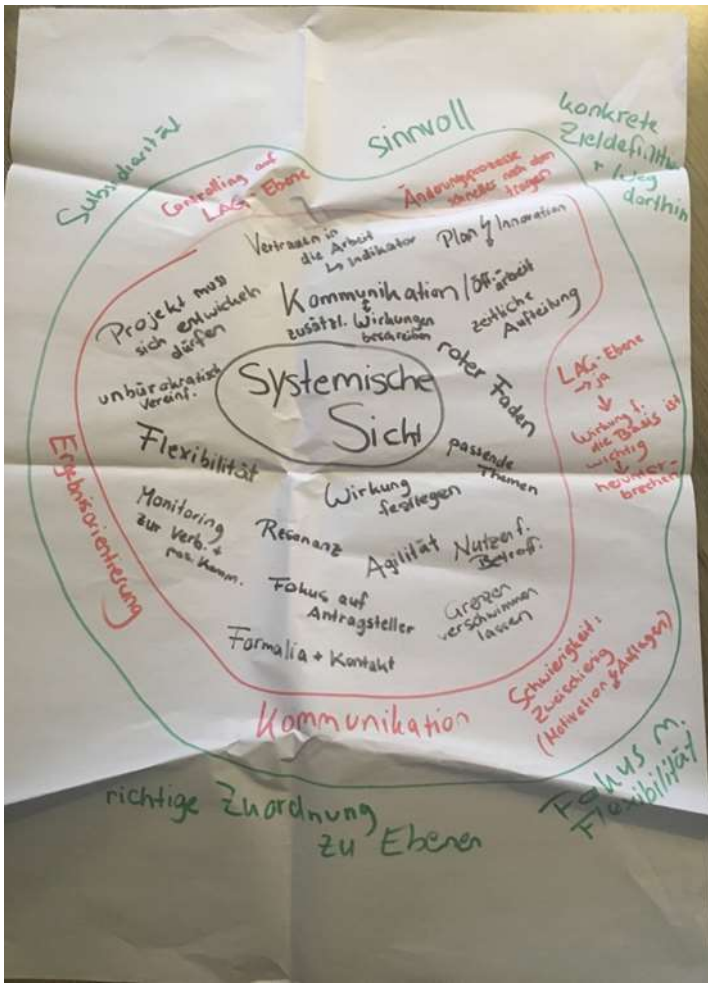 Subsidiarität
sinnvoll
konkrete
Zieldefinition
+ Weg
dorthin
Controlling auf
LAG-Ebene
Änderungsprozesse
schneller nach oben
tragen
Vertrauen in
die Arbeit
↳ Indikator
Plan ↯ Innovation
Projekt muss
sich entwickeln
dürfen
Kommunikation / Öff.-
arbeit
zusätzl. Wirkungen
beschreiben
zeitliche
Aufteilung
unbürokratisch
Vereinf.
Systemische
Sicht
roter Faden
LAG-Ebene
→ ja
↓
Wirkung f.
die Basis ist
wichtig
↓
herunter-
brechen
Flexibilität
passende
Themen
Wirkung
festlegen
Monitoring
zur Verb. +
pos. Komm.
Resonanz
Agilität
Nutzen f.
Betroff.
Fokus auf
Antragsteller
Grenzen
verschwimmen
lassen
Formalia + Kontakt
Ergebnisorientierung
Kommunikation
Schwierigkeit:
Zwischending
(Motivation ↯ Auflagen)
Fokus m.
Flexibilität
richtige Zuordnung
zu Ebenen